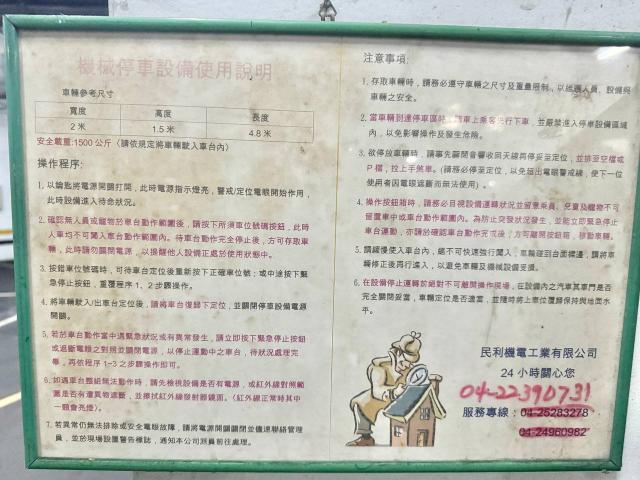 機械停車設備使用說明
車輛參考尺寸
寬度 高度 長度
2 米 1.5 米 4.8 米
安全載重:1500 公斤(請依規定將車輛駛入車台內)
操作程序:
1. 以鑰匙將電源開關打開,此時電源指示燈亮,警戒/定位電眼開始作用,
此時設備進入待命狀況。
2. 確認無人員或寵物於車台動作範圍後,請按下所須車位號碼按鈕,此時
人車均不可闖入車台動作範圍內。待車台動作完全停止後,方可存取車
輛,此時請勿關閉電源,以提醒他人設備正處於使用狀態中。
3. 按錯車位號碼時,可待車台定位後重新按下正確車位號;或中途按下緊
急停止按鈕,重覆程序 1、2步驟操作。
4. 將車輛駛入/出車台定位後,請將車台復歸下定位,並關閉停車設備電源
開關。
5. 若於車台動作當中遇緊急狀況或有異常發生,請立即按下緊急停止按鈕
或遮斷電眼之對照並關閉電源,以停止運動中之車台,待狀況處理完
畢,再依程序 1~3 之步驟操作即可。
6. 如遇車台整組無法動作時,請先檢視設備是否有電源,或紅外線對照範
圍是否有遭異物遮斷,並擦拭紅外線發射器鏡面。(紅外線正常時其中
一顆會亮燈)。
7. 若異常仍無法排除或安全電眼故障,請將電源開關關閉並儘速聯絡管理
員,並於現場設置警告標誌,通知本公司派員前往處理。
注意事項:
1. 存取車輛時,請務必遵守車輛之尺寸及重量限制,以維護人員、設備與
車輛之安全。
2. 當車輛到達停車區時,請車上乘客先行下車,並嚴禁進入停車設備區域
內,以免影響操作及發生危險。
3. 欲停放車輛時,請事先關閉音響收回天線再停妥至定位,並排至空檔或
P 檔,拉上手煞車。(請務必停至定位,以免超出電眼警戒線,使下一位
使用者因電眼遮斷而無法使用)。
4. 操作按鈕箱時,請務必目視設備運轉狀況並留意乘員、兒童及寵物不可
留置車中或車台動作範圍內。為防止突發狀況發生,並能立即緊急停止
車台運動,亦請於確認車台動作完成後,方可離開按鈕箱,移動車輛。
5. 請緩慢使入車台內,絕不可快速強行闖入,車輛碰到台面標邊,請將車
輛修正後再行進入,以避免車輛及機械設備受損。
6. 在設備停止運轉前絕對不可離開操作現場,在設備內之汽車其車門是否
完全關閉妥當,車輛定位是否適當,並隨時將上車位覆歸保持與地面水
平。
民利機電工業有限公司
24 小時關心您
04-22390731
服務專線:04-25283278
04-24960982